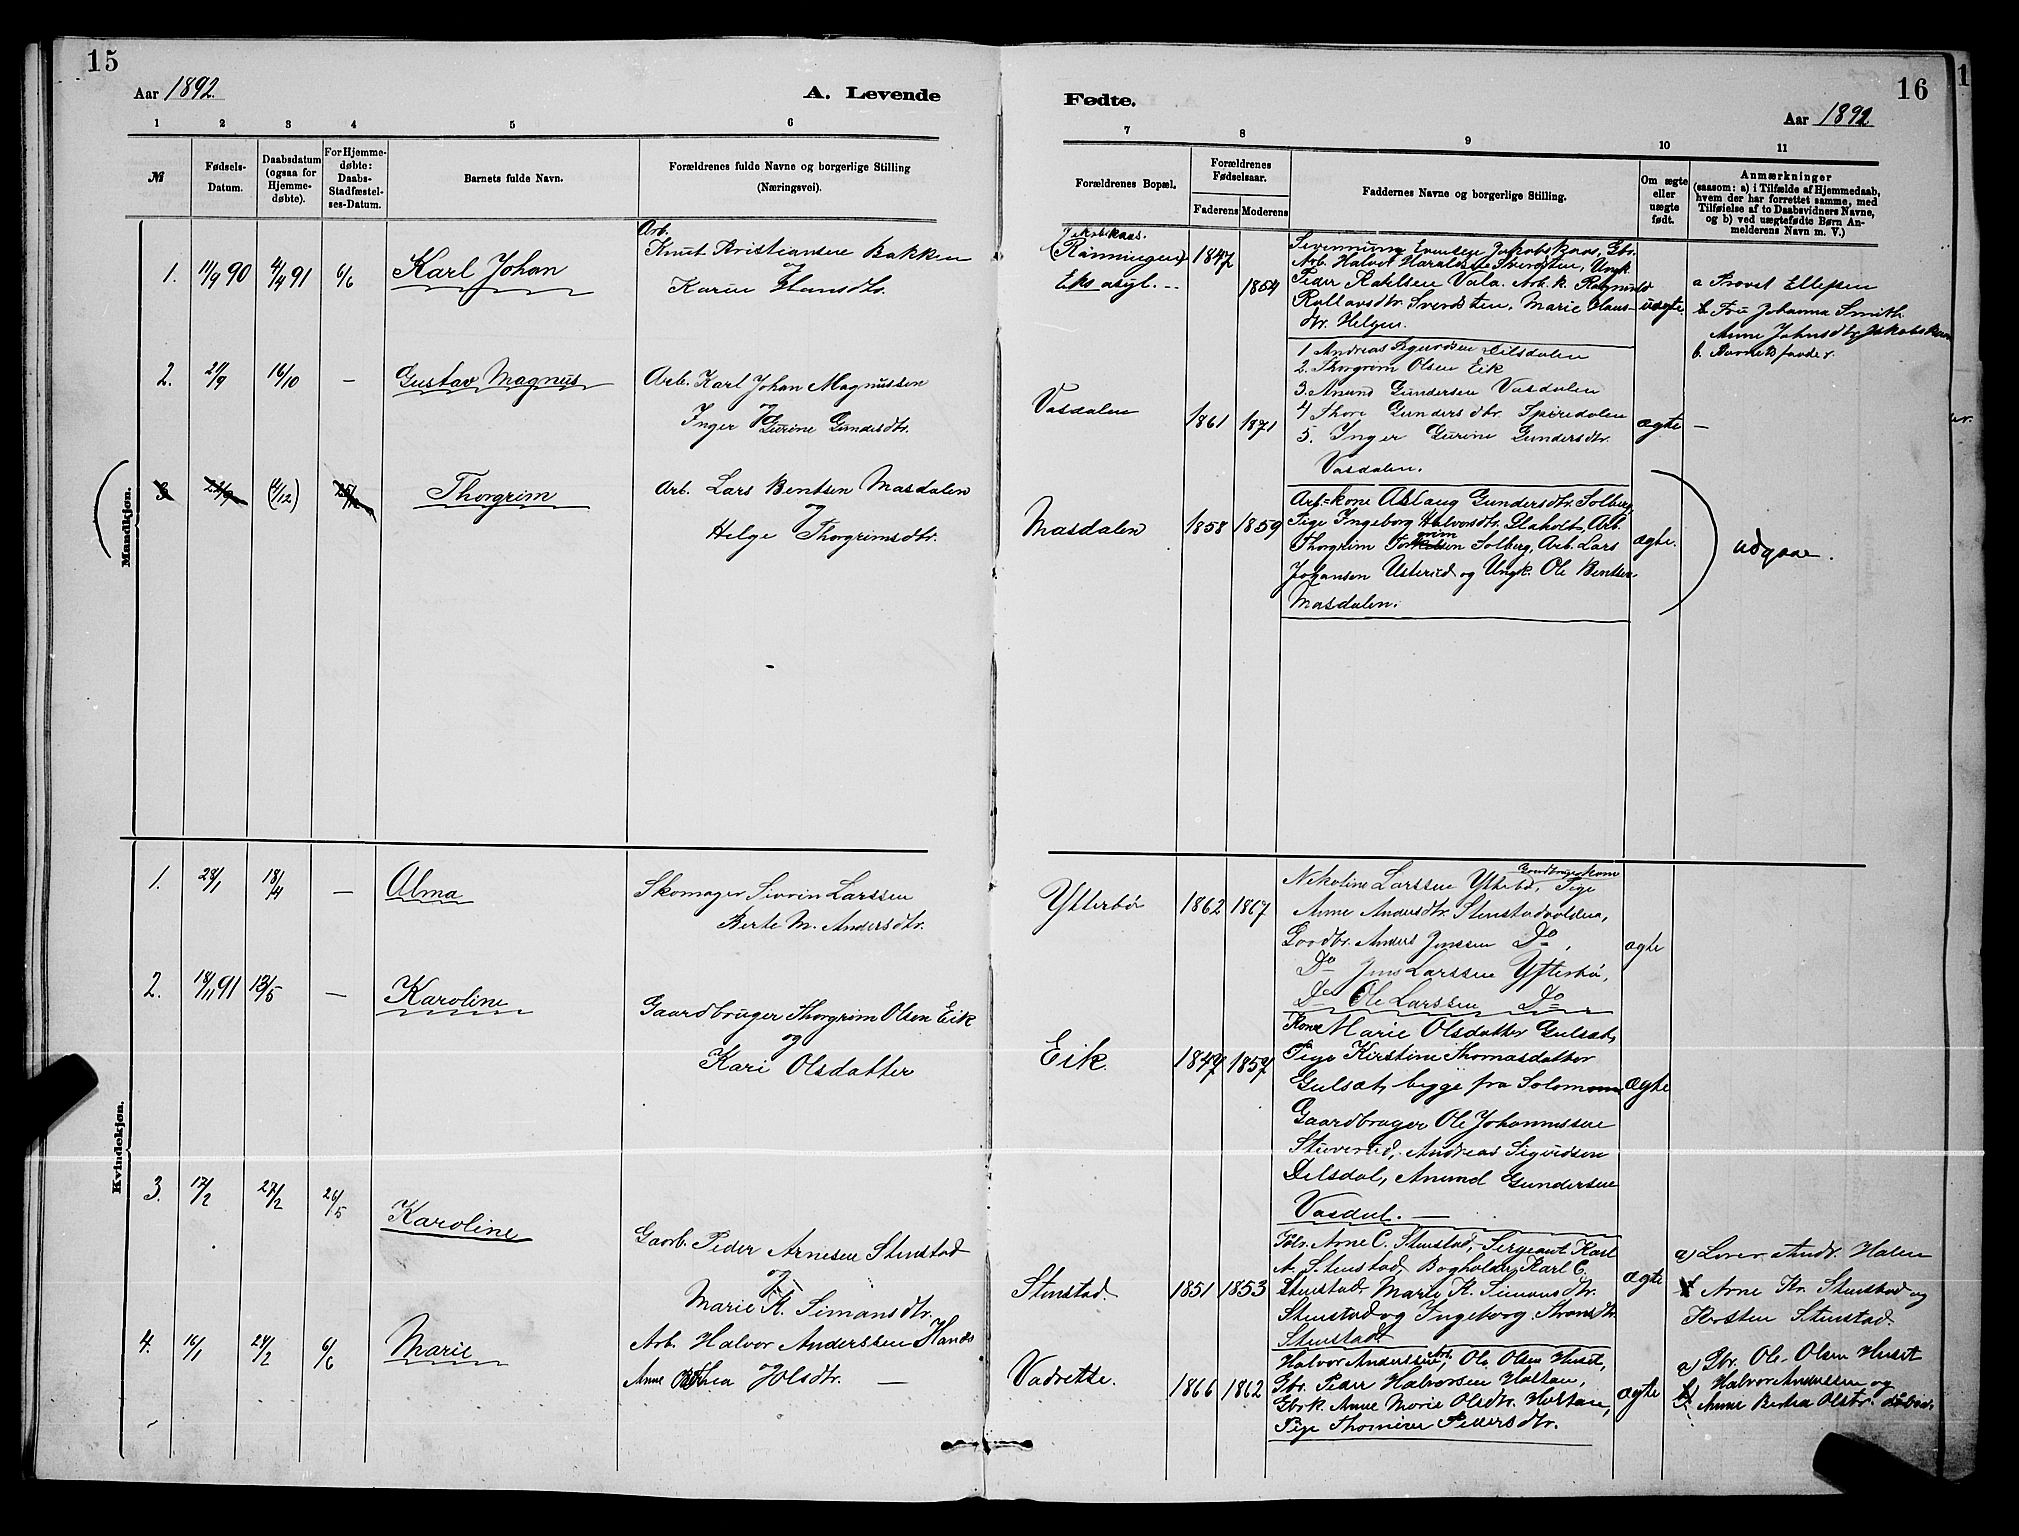 15
Aar 1892.
A. Levende
1 2 3 4 5 6
№
Fødsels-
Datum.
Daabsdatum
(ogsaa for
Hjemme-
døbte).
For Hjemme-
døbte:
Daabs-
Stadfæstel-
ses-Datum.
Barnets fulde Navn.
Forældrenes fulde Navne og borgerlige Stilling
(Næringsvei).
Mandkjøn.
Arb.
1. 11/9 90 4/4 91 6/6 Karl Johan Knut Kristiansen Bakken
og
Karen Hansdtr.
2. 27/9 16/10 — Gustav Magnus Arb. Karl Johan Magnussen
og
Inger Gurine Gundersdtr.
3. (4/12) Thorgrim Arb. Lars Bentsen Masdalen
og
Helge Thorgrimsdtr.
Kvindekjøn.
1. 28/1 18/4 — Alma Skomager Sivrin Larssen
Berte M. Andersdtr.
2. 18/11 91 13/5 — Karoline Gaardbruger Thorgrim Olsen Eik
og
Kari Olsdatter
3. 17/2 27/2 26/5 Karoline
Gaarb. Peder Arnesen Stenstad
og
Marie K. Simonsdtr.
4. 16/1 24/2 6/6 Marie Arb. Halvor Anderssen
Anne Olsdtr. —
16
Fødte.
Aar 1892.
7 8 9 10 11
Forældrenes Bopæl.
Forældrenes
Fødselsaar.
Faderens Moderens
Faddernes Navne og borgerlige Stilling.
Om ægte
eller
uægte
født.
Anmærkninger
(saasom: a) i Tilfælde af Hjemmedaab,
hvem der har forrettet samme, med
Tilføielse af to Daabsvidners Navne,
og b) ved uægtefødte Børn An-
melderens Navn m. V.)
Jakobskaas.
(Rønningen)
Eks asyl. —
1847
1854
Evensen Jakobskaas, Gbr.
Arb. Halvor Haraldsen Sverdsten, Ungk
Peder Vala. Arb. k. Ragnhild
Rollavsdtr. Sverdsten, Marie Claus-
dtr. Helgen.
uægte
a Provst Ellefsen
b Fru Johanna Smith
Anne Johnsdtr Jakobskaas
b. Barnets fader.
Vasdalen
1861 1871
1 Andreas Sigurdsen Dilsdalen
2. Thorgrim Olsen Eik
3. Anund Gundersen Vasdalen
4 Thore Gundersdtr. Spiredalen
5. Inger Gurine Gundersdtr.
Vasdalen.
ægte —
Masdalen 1858 1859
Arb=kone Aslaug Gundersdtr. Solberg,
Pige Ingeborg Halvorsdtr. Arb.
Thorgrim Solberg, Arb. Lars
Johansen Usterud og Ungk. Ole Bentsen
Masdalen.
ægte.
udgaar.
Ytterbø 1862 1867
Gaardbrugerkone
Nikoline Larssen Ytterbø, Pige
Anne Andersdtr. Stenstadvolden,
Gaardbr. Anders Jenssen Do,
Do Jens Larssen Ytterbø,
Do Ole Larssen Do
ægte
Eik 1847 1857
Kone Marie Olsdatter Gulset,
Pige Kirstine Thomasdatter
Gulset, begge fra Solum
Gaardbruger Ole Johannessen
Andreas Sigurdsen
Dilsdal, Anund Gundersen
Vasdal. —
ægte
Stenstad 1851 1853
Arne C. Stenstad, Sergeant Karl
A. Stenstad, Bogholder Karl C.
Stenstad Marie K. Simonsdtr.
Stenstad og Ingeborg
Stenstad
ægte
a) Lærer Andr. Halen
b Arne Kr. Stenstad og
Kirsten Stenstad
Vadrette. 1866 1862
Halvor Anderssen, Arb. Ole Olsen Huset,
Gbr. Peder Halvorsen Holtan,
Gbrk. Anne Marie Olsdtr. Holtan,
Pige Thomine Pedersdtr.
ægte
a) Gbr. Ole Olsen Huset
b. Halvor Anderssen og
Anne Olsdtr.